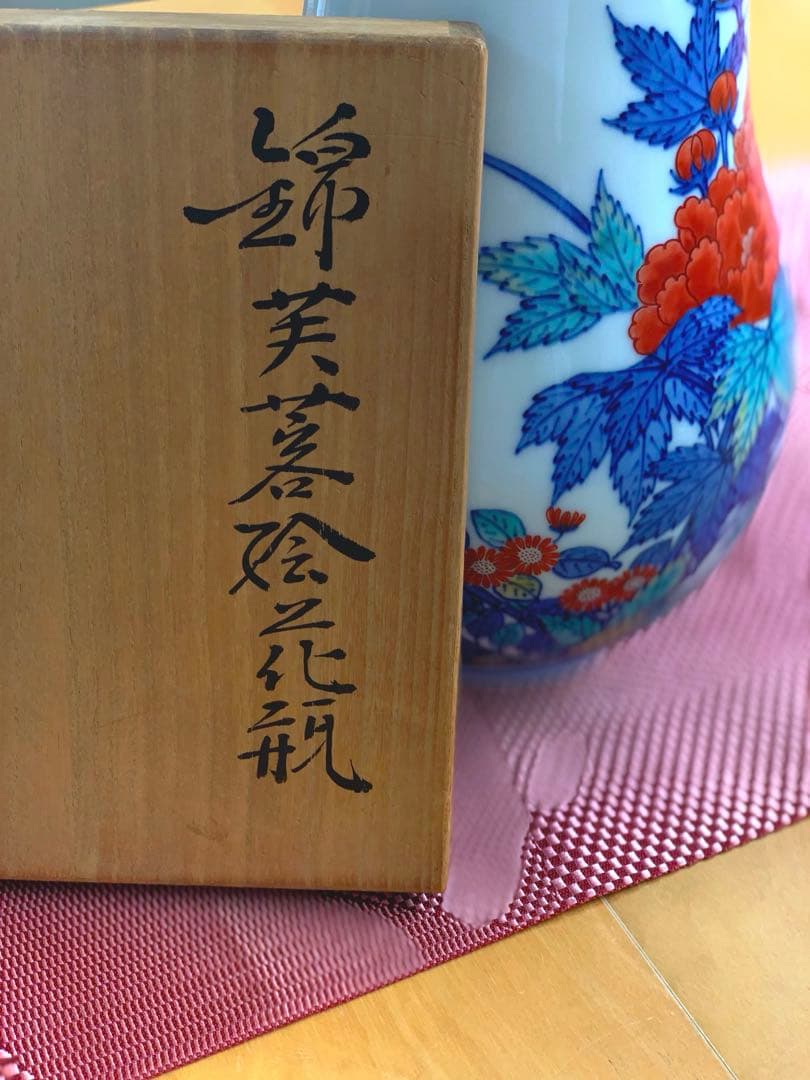 錦芙蓉絵花瓶